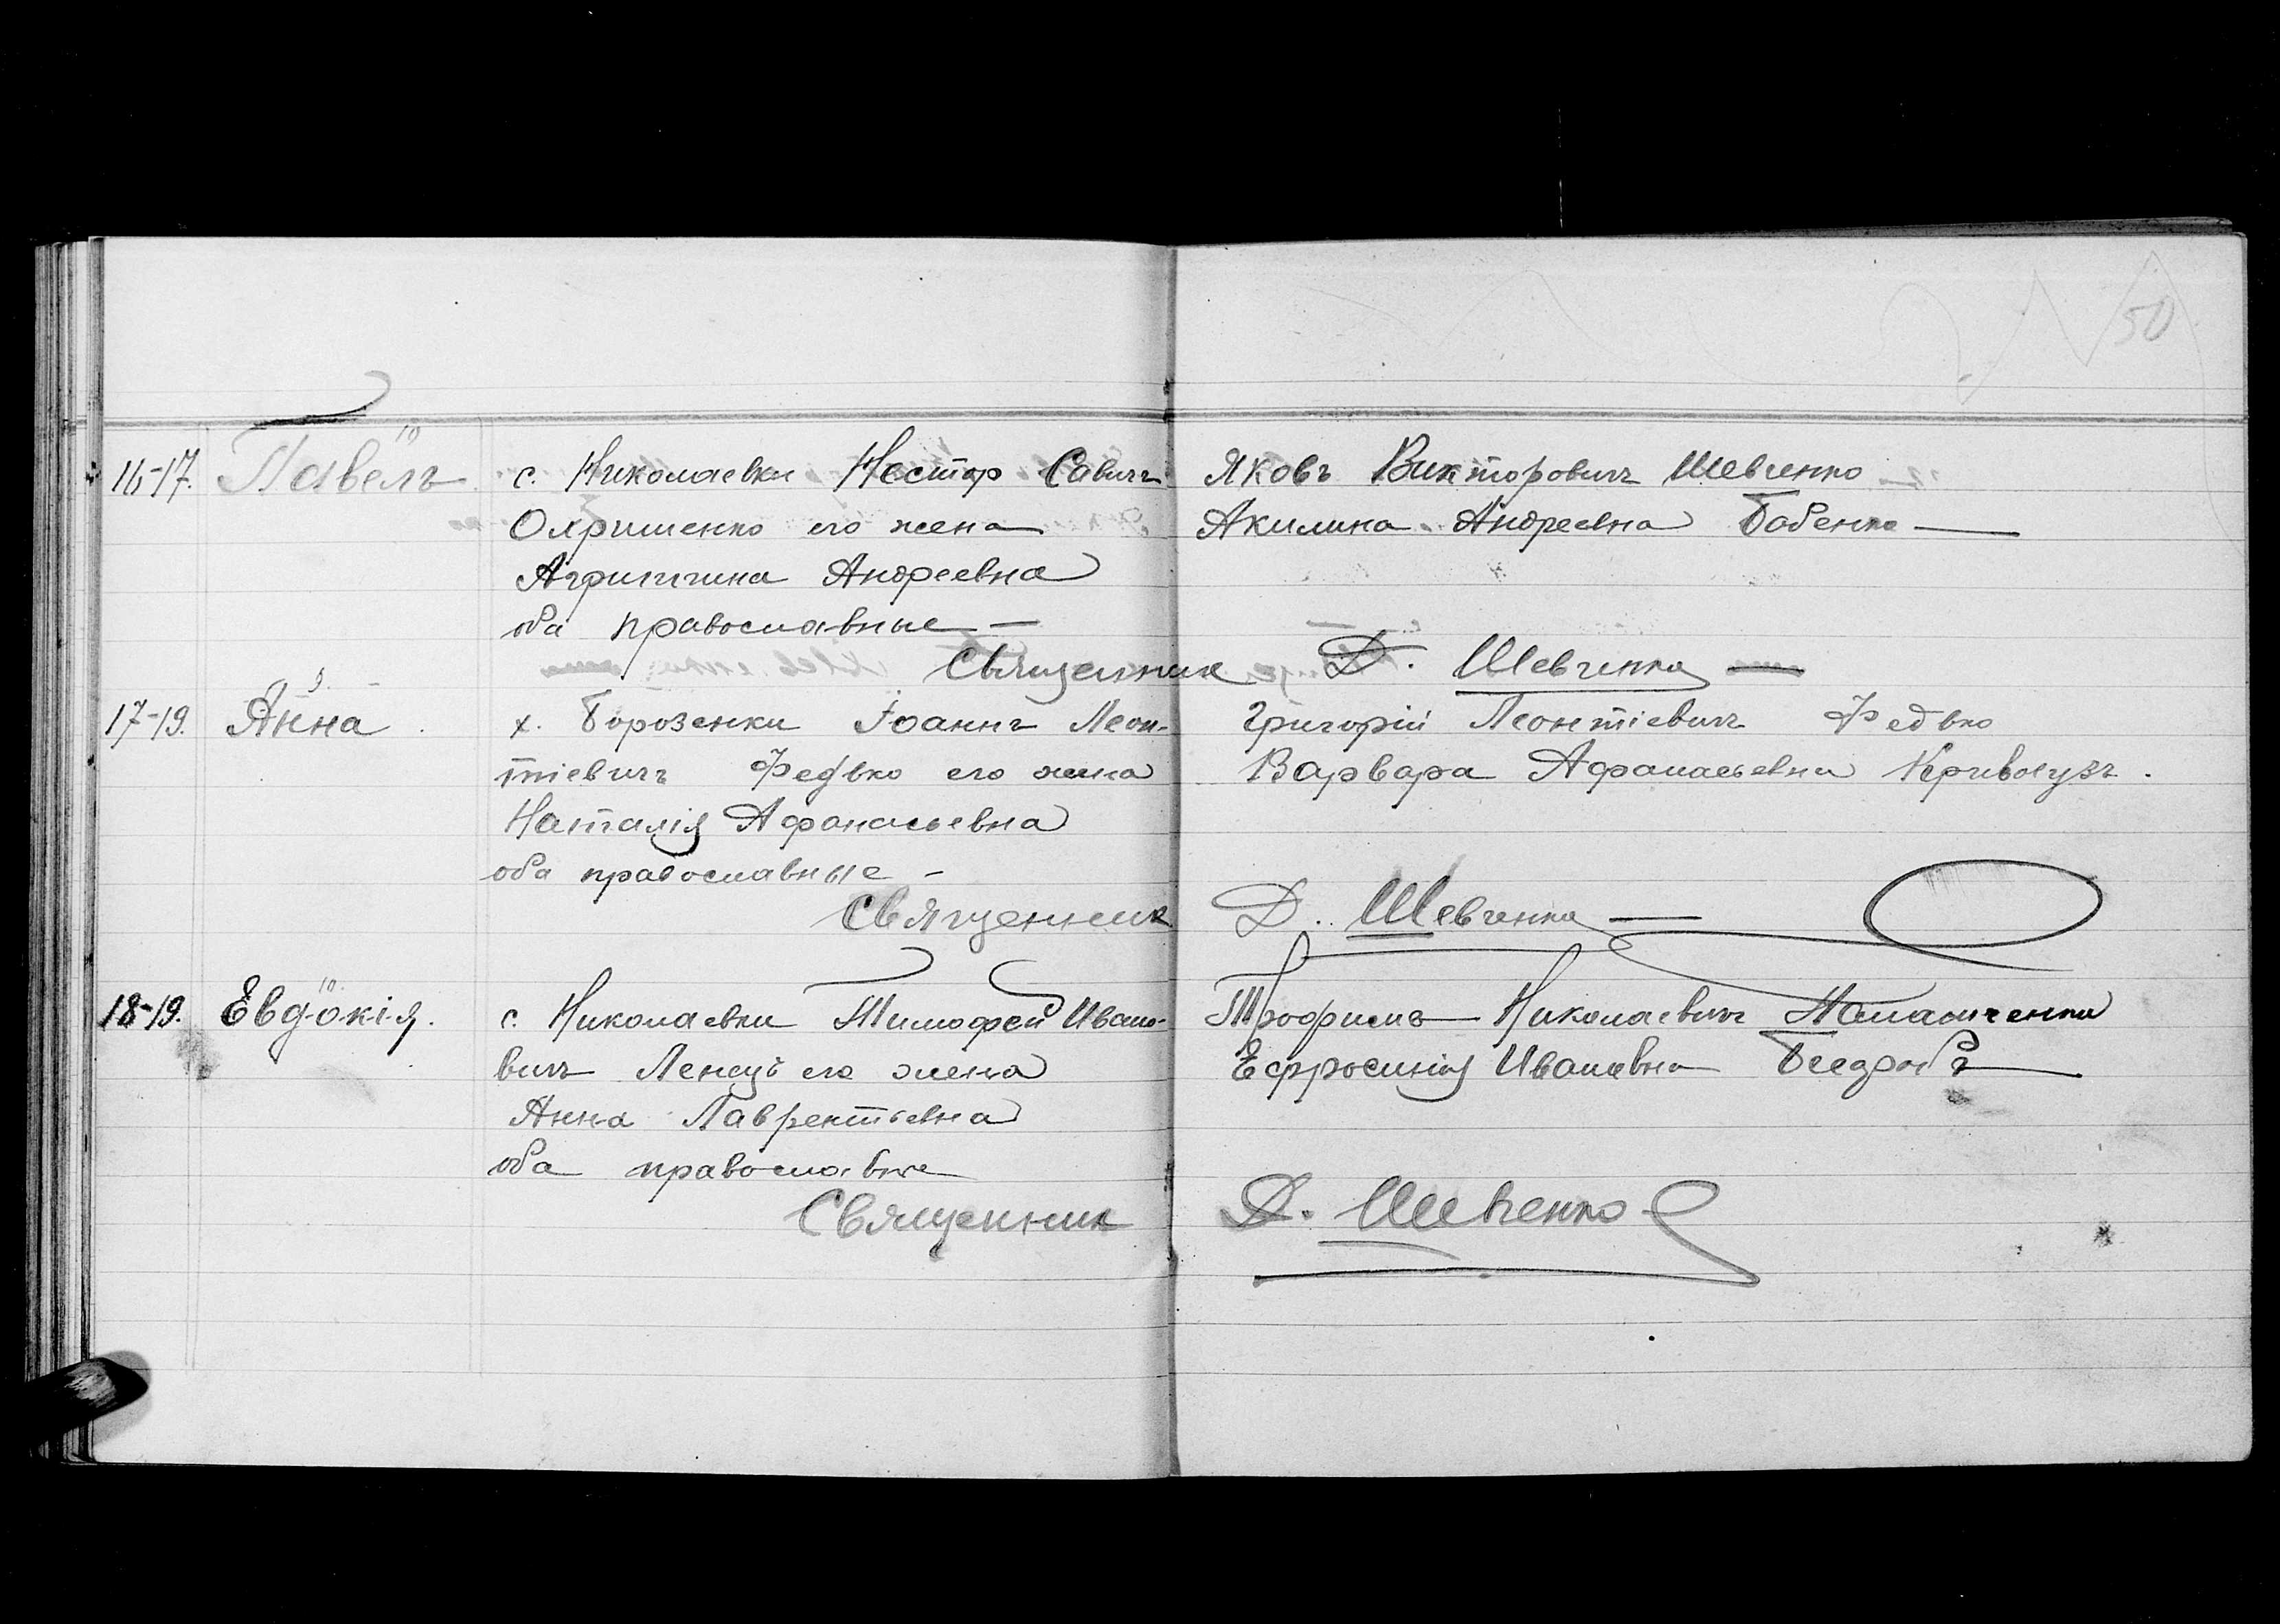 50
10
16-17. Павелъ с. Николаевки Нестор Савичъ Яковъ Викторовичъ Шевченко
Охрименко его жена Акилина Андреевна Бабенко
Агриппина Андреевна
оба православные
Священник Д. Шевченко
9.
17-19. Анна х. Борозенки Іоаннъ Леон- Григорій Леонтіевичъ Федько
тіевичъ Федько его жена Варвара Афанасьевна Кривогузъ.
Наталія Афанасьевна
оба православные
Священник Д. Шевченко
10.
18-19. Евдокія. с. Николаевки Тимофей Ивано- Трофимъ Николаевичъ
вичъ его жена Ефросинія Ивановна
Анна Лаврентьевна
оба православные
Священник Д. Шевченко